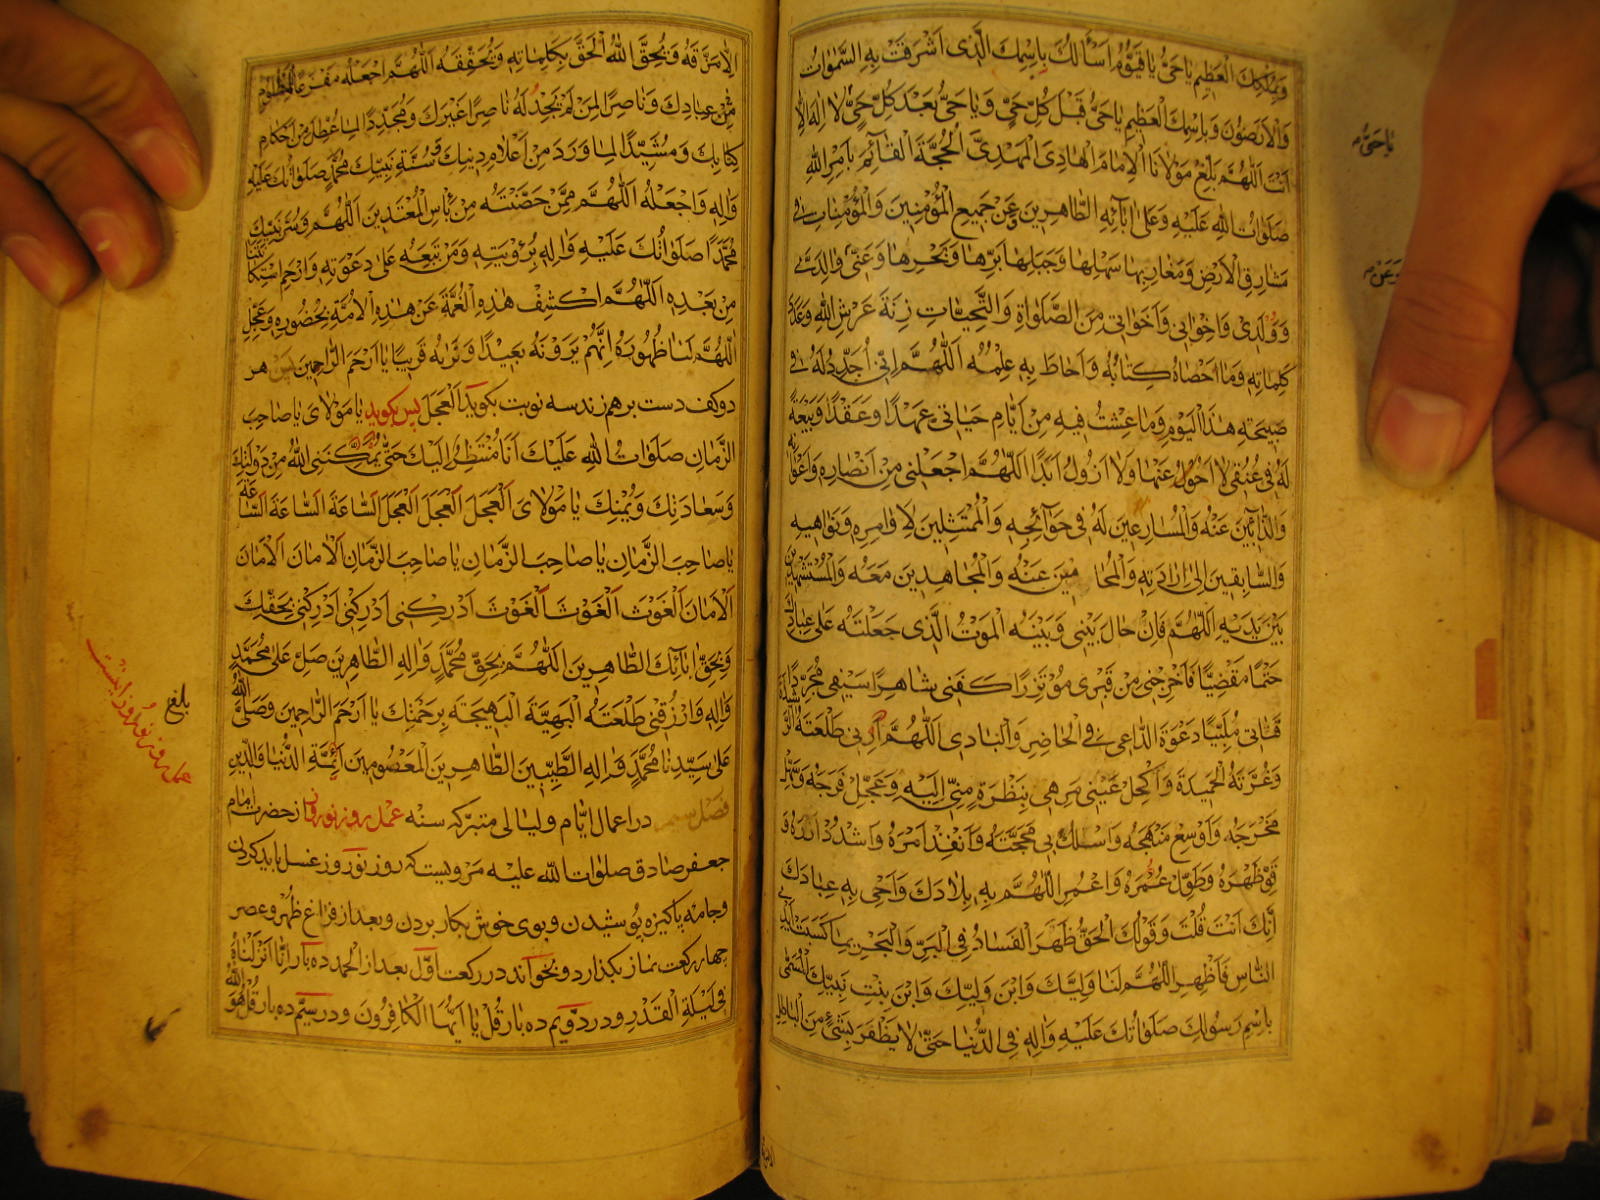 وَبِمُلْكِكَ الْعَظِيمِ يَا حَيُّ يَا قَيُّومُ اَسْأَلُكَ بِاسْمِكَ الَّذِى اَشْرَقَتْ بِهِ السَّمٰوَاتُ
وَالْاَرَضُونَ وَبِاسْمِكَ الْعَظِيمِ يَا حَيُّ قَبْلَ كُلِّ حَيٍّ وَيَا حَيُّ بَعْدَ كُلِّ حَيٍّ لَا اِلٰهَ اِلَّا
يَا حَيُّ
اَنْتَ اَللّٰهُمَّ بَلِّغْ مَوْلَانَا الْاِمَامَ الْهَادِىَ الْمَهْدِىَّ الْحُجَّةَ الْقَائِمَ بِاَمْرِ اللّٰهِ
صَلَوَاتُ اللّٰهِ عَلَيْهِ وَعَلٰى اٰبَائِهِ الطَّاهِرِينَ وَعَنْ جَمِيعِ الْمُؤْمِنِينَ وَالْمُؤْمِنَاتِ فِى
مَشَارِقِ الْاَرْضِ وَمَغَارِبِهَا سَهْلِهَا وَجَبَلِهَا بَرِّهَا وَبَحْرِهَا وَعَنِّى وَالِدَتِى
وَعَنْ
وَوُلْدِى وَاِخْوَانِى وَاَخَوَاتِى مِنَ الصَّلَوَاةِ وَالتَّحِيَّاتِ زِنَةَ عَرْشِ اللّٰهِ وَعَدَدَ
كَلِمَاتِهِ وَمَا اَحْصَاهُ كِتَابُهُ وَاَحَاطَ بِهِ عِلْمُهُ اَللّٰهُمَّ اِنِّى اُجَدِّدُ لَهُ فِى
صَبِيحَةِ هٰذَا الْيَوْمِ وَمَا عِشْتُ فِيهِ مِنْ اَيَّامِ حَيَاتِى عَهْدًا وَعَقْدًا وَبَيْعَةً
لَهُ فِى عُنُقِى لَا اَحُولُ عَنْهَا وَلَا اَزُولُ اَبَدًا اَللّٰهُمَّ اجْعَلْنِى مِنْ اَنْصَارِهِ وَاَعْوَانِهِ
وَالذَّابِّينَ عَنْهُ وَالْمُسَارِعِينَ لَهُ فِى حَوَائِجِهِ وَالْمُمْتَثِلِينَ لِاَوَامِرِهِ وَنَوَاهِيهِ
وَالسَّابِقِينَ اِلٰى اِرَادَتِهِ وَالْمُحَامِينَ عَنْهُ وَالْمُجَاهِدِينَ مَعَهُ وَالْمُسْتَشْهَدِينَ
بَيْنَ يَدَيْهِ اَللّٰهُمَّ فَاِنْ حَالَ بَيْنِى وَبَيْنَهُ الْمَوْتُ الَّذِى جَعَلْتَهُ عَلٰى عِبَادِكَ
حَتْمًا مَقْضِيًّا فَاَخْرِجْنِى مِنْ قَبْرِى مُؤْتَزِرًا كَفَنِى شَاهِرًا سَيْفِى مُجَرِّدًا
قَنَاتِى مُلَبِّيًا دَعْوَةَ الدَّاعِى فِى الْحَاضِرِ وَالْبَادِى اَللّٰهُمَّ اَرِنِى طَلْعَتَهُ الرَّشِيدَةَ
وَغُرَّتَهُ الْحَمِيدَةَ وَاكْحُلْ عَيْنِى مَرْهَى بِنَظْرَةٍ مِنِّى اِلَيْهِ وَعَجِّلْ فَرَجَهُ وَسَهِّلْ
مَخْرَجَهُ وَاَوْسِعْ مَنْهَجَهُ وَاسْلُكْ بِى مَحَجَّتَهُ وَاَنْفِذْ اَمْرَهُ وَاشْدُدْ اَزْرَهُ وَ
قَوِّ ظَهْرَهُ وَطَوِّلْ عُمْرَهُ وَاعْمُرِ اللّٰهُمَّ بِهِ بِلَادَكَ وَاَحْىِ بِهِ عِبَادَكَ
اِنَّكَ اَنْتَ قُلْتَ وَقَوْلُكَ الْحَقُّ ظَهَرَ الْفَسَادُ فِى الْبَرِّ وَالْبَحْرِ بِمَا كَسَبَتْ اَيْدِى
النَّاسِ فَاَظْهِرِ اللّٰهُمَّ لَنَا وَلِيَّكَ وَابْنَ وَلِيِّكَ وَابْنَ بِنْتِ نَبِيِّكَ الْمُسَمّٰى
بِاسْمِ رَسُولِكَ صَلَوَاتُكَ عَلَيْهِ وَاٰلِهِ فِى الدُّنْيَا حَتّٰى لَا يَظْفَرَ بِشَىْءٍ مِنَ الْبَاطِلِ
اِلَّا مَزَّقَهُ وَيُحِقَّ اللّٰهُ الْحَقَّ بِكَلِمَاتِهِ وَيُحَقِّقَهُ اَللّٰهُمَّ اجْعَلْهُ مَفْزَعًا لِلْمَظْلُومِ
مِنْ عِبَادِكَ وَنَاصِرًا لِمَنْ لَمْ يَجِدْ لَهُ نَاصِرًا غَيْرَكَ وَمُجَدِّدًا لِمَا عُطِّلَ مِنْ اَحْكَامِ
كِتَابِكَ وَمُشَيِّدًا لِمَا وَرَدَ مِنْ اَعْلَامِ دِينِكَ وَسُنَّةِ نَبِيِّكَ مُحَمَّدٍ صَلَوَاتُكَ عَلَيْهِ
وَاٰلِهِ وَاجْعَلْهُ اَللّٰهُمَّ مِمَّنْ حَصَّنْتَهُ مِنْ بَأْسِ الْمُعْتَدِينَ اَللّٰهُمَّ وَسُرَّ نَبِيَّكَ
مُحَمَّدًا صَلَوَاتُكَ عَلَيْهِ وَاٰلِهِ بِرُؤْيَتِهِ وَمَنْ تَبِعَهُ عَلٰى دَعْوَتِهِ وَارْحَمِ اسْتِكَانَتَنَا
مِنْ بَعْدِهِ اَللّٰهُمَّ اكْشِفْ هٰذِهِ الْغُمَّةَ عَنْ هٰذِهِ الْاُمَّةِ بِحُضُورِهِ وَعَجِّلِ
اللّٰهُمَّ لَنَا ظُهُورَهُ اِنَّهُمْ يَرَوْنَهُ بَعِيدًا وَنَرٰيهُ قَرِيبًا يَا اَرْحَمَ الرَّاحِمِينَ پس هر
دو کف دست بر هم زند سه نوبت بگوید اَلْعَجَلَ پس بگوید يَا مَوْلَاىَ يَا صَاحِبَ
الزَّمَانِ صَلَوَاتُ اللّٰهِ عَلَيْكَ اَنَا مُنْتَظِرٌ اِلَيْكَ حَتّٰى يُمَكِّنَنِىَ اللّٰهُ مِنْ دَوْلَتِكَ
وَسَعَادَتِكَ وَيُمْنِكَ يَا مَوْلَاىَ الْعَجَلَ الْعَجَلَ الْعَجَلَ السَّاعَةَ السَّاعَةَ السَّاعَةَ
يَا صَاحِبَ الزَّمَانِ يَا صَاحِبَ الزَّمَانِ يَا صَاحِبَ الزَّمَانِ الْاَمَانَ الْاَمَانَ
الْاَمَانَ الْغَوْثَ الْغَوْثَ الْغَوْثَ اَدْرِكْنِى اَدْرِكْنِى اَدْرِكْنِى بِحَقِّكَ
وَبِحَقِّ اٰبَائِكَ الطَّاهِرِينَ اَللّٰهُمَّ بِحَقِّ مُحَمَّدٍ وَاٰلِهِ الطَّاهِرِينَ صَلِّ عَلٰى مُحَمَّدٍ
وَاٰلِهِ وَارْزُقْنِى طَلْعَتَهُ الْبَهِيَّةَ الْبَهِيجَةَ بِرَحْمَتِكَ يَا اَرْحَمَ الرَّاحِمِينَ وَصَلَّى اللّٰهُ
بلغ
عَلٰى سَيِّدِنَا مُحَمَّدٍ وَاٰلِهِ الطَّيِّبِينَ الطَّاهِرِينَ الْمَعْصُومِينَ اَئِمَّةِ الدُّنْيَا وَالدِّينِ
عمل روز نوروز اینست
فصل سیم در اعمال ایّام و لیالی متبرّکه سنه عمل روز نوروز از حضرت امام
جعفر صادق صلوات اللّه علیه مرویست که روز نوروز غسل باید کردن
و جامه پاکیزه پوشیدن و بوی خوش بکار بردن و بعد از فراغ ظهر و عصر
چهار رکعت نماز بگذارد و بخواند در رکعت اوّل بعد از الحمد ده بار اِنَّا اَنْزَلْنَاهُ
فِى لَيْلَةِ الْقَدْرِ و در دوّیم ده بار قُلْ يَا اَيُّهَا الْكَافِرُونَ و در سیّم ده بار قُلْ هُوَ اللّٰهُ